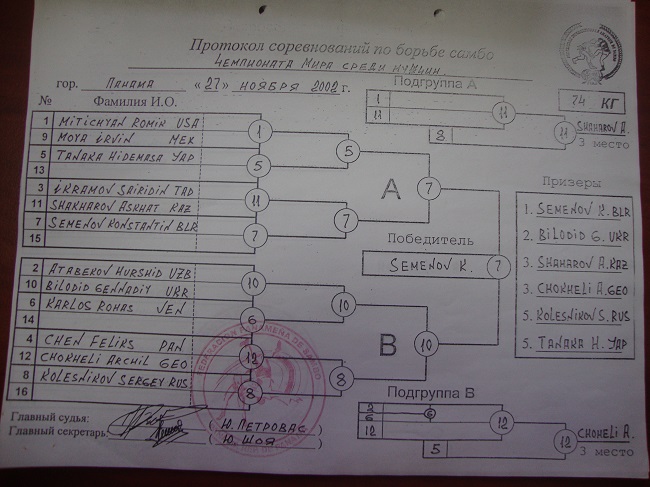 Протокол соревнований по борьбе самбо
Чемпионата Мира среди мужчин.
гор. Панама «27» ноября 2002 г.
Подгруппа А
74 кг
1
11
11
8
11
SHAHAROV A.
3 место
№ Фамилия И.О.
1 MITICHYAN ROMIR USA
9 MOYA IRVIN MEX
5 TANAKA HIDEMASA YAP
13
3 IKRAMOV SAIRIDIN TAD
11 SHAKHAROV ASKHAT KAZ
7 SEMENOV KONSTANTIN BLR
15
1
5
11
7
5
7
A
7
Победитель
SEMENOV K.
7
2 ATABEKOV HURSHID UZB
10 BILODID GENNADIY UKR
6 KARLOS ROHAS VEN
14
4 CHEN FELIKS PAN
12 CHOKHELI ARCHIL GEO
8 KOLESNIKOV SERGEY RUS
16
10
6
12
8
10
8
B
10
Призеры
1. SEMENOV K. BLR
2. BILODID G. UKR
3. SHAHAROV A. KAZ
3. CHOKHELI A. GEO
5. KOLESNIKOV S. RUS
5. TANAKA H. YAP
Подгруппа В
2
6
6
12
12
5
12
CHOHELI A.
3 место
Главный судья:
Главный секретарь:
( Ю. ПЕТРОВАС )
( Ю. ШОЯ )